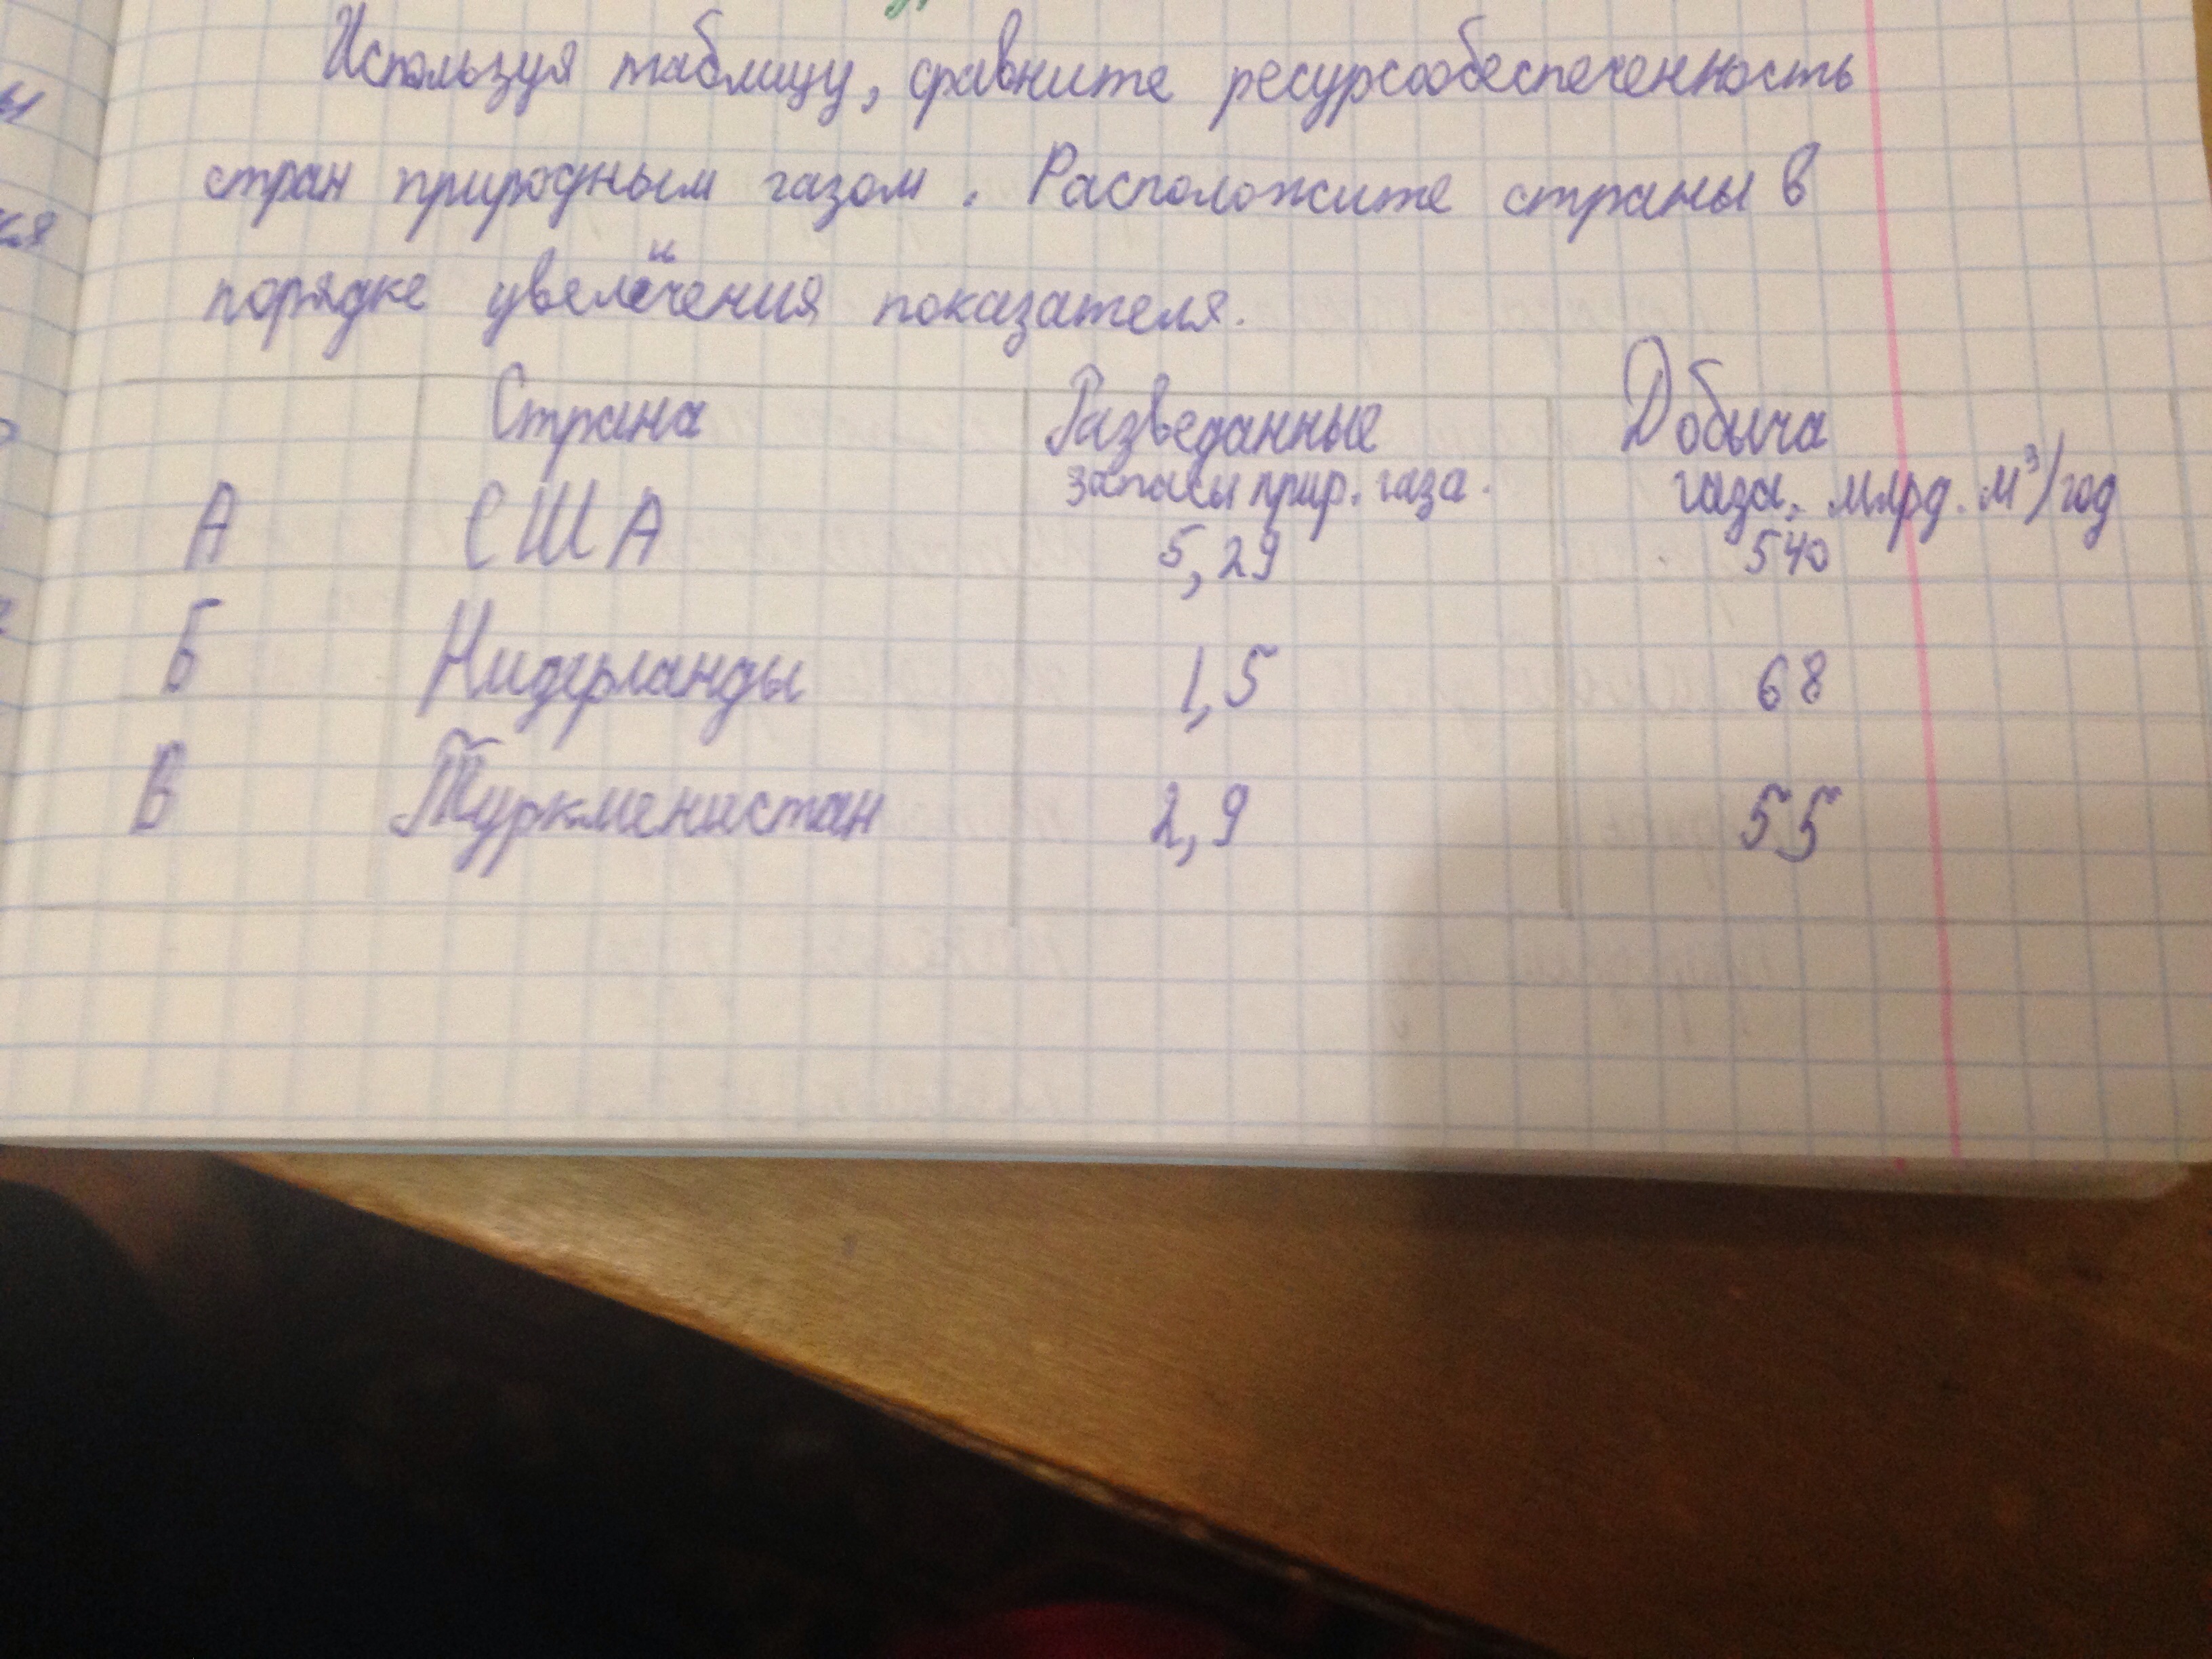 Используя таблицу, сравните ресурсообеспеченность
стран природным газом. Расположите страны в
порядке увеличения показателя.
Страна Разведанные запасы прир. газа. Добыча газа, млрд. м³/год
А США 5,29 540
Б Нидерланды 1,5 68
В Туркменистан 2,9 55